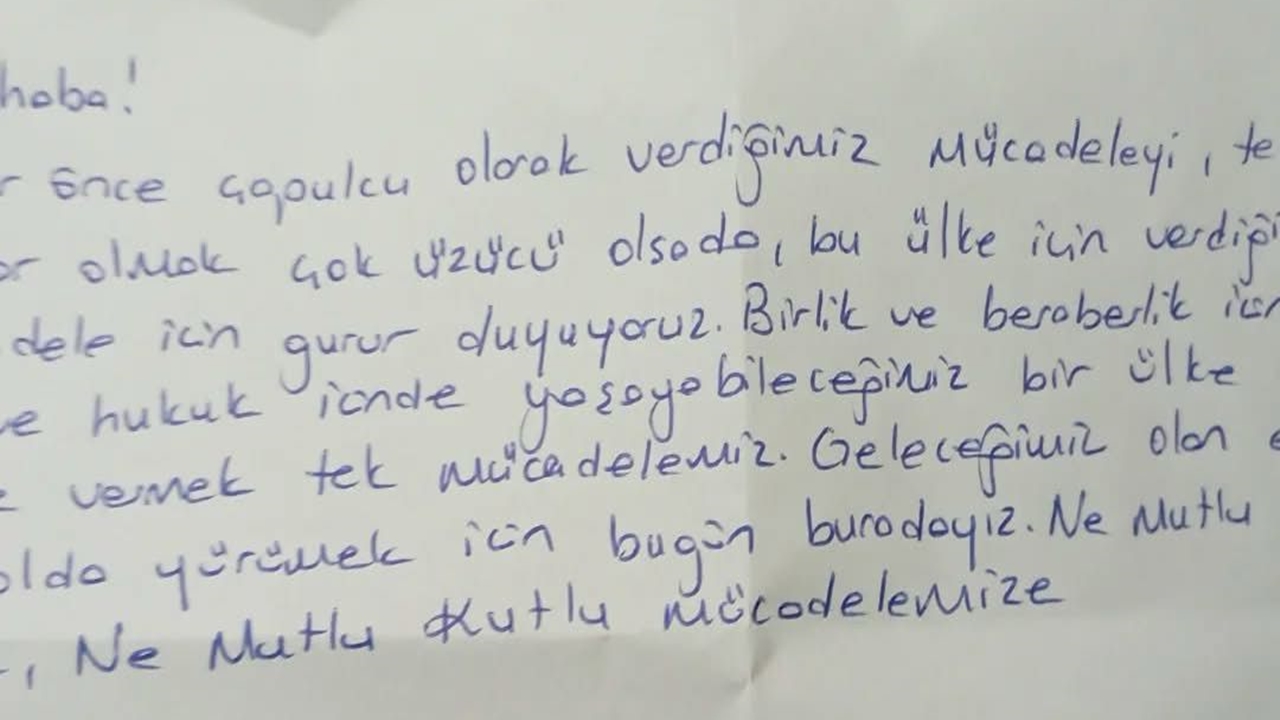 haba!
r önce çapulcu olarak verdiğimiz mücadeleyi, te
or olmak çok üzücü olsada, bu ülke için verdiği
dele için gurur duyuyoruz. Birlik ve beraberlik için
e hukuk içinde yaşayabileceğimiz bir ülke
vermek tek mücadelemiz. Geleceğimiz olan
olda yürümek için bugün buradayız. Ne Mutlu
, Ne Mutlu Kutlu mücadelemize